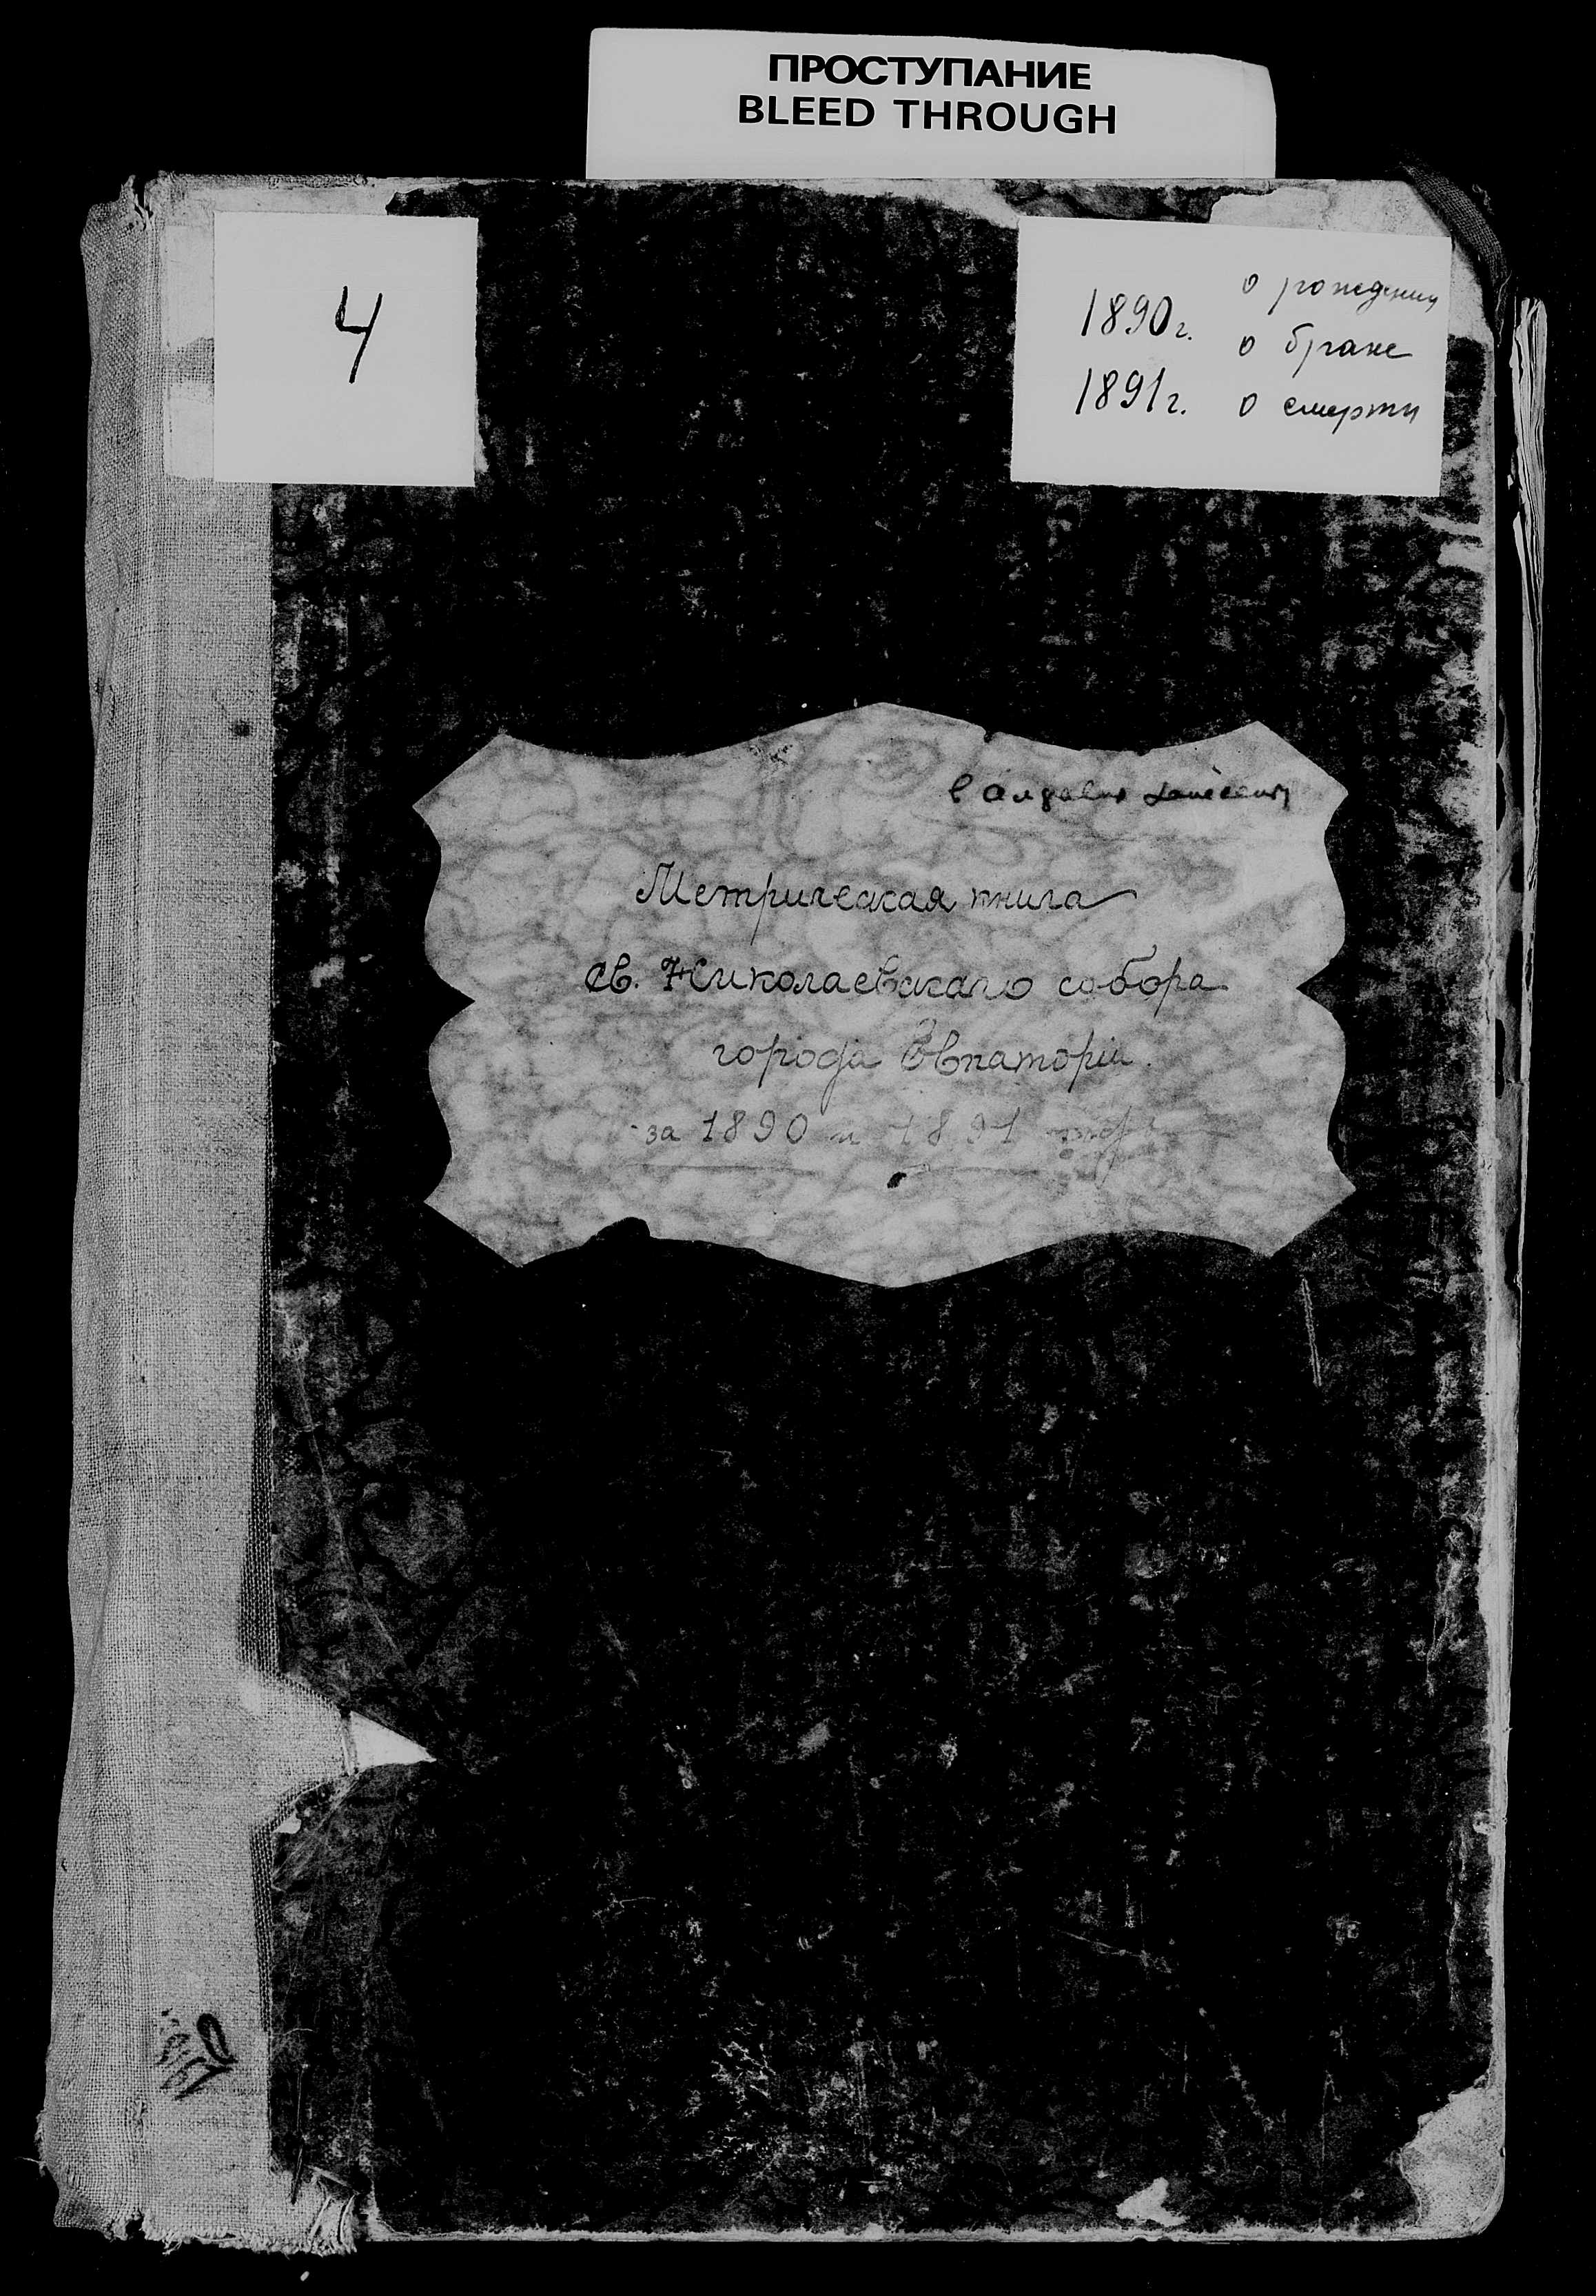 ПРОСТУПАНИЕ
BLEED THROUGH
4
1890г. о рождении
о браке
1891г. о смерти
Метрическая книга
св. Николаевскаго собора
города Евпаторіи.
за 1890 и 1891